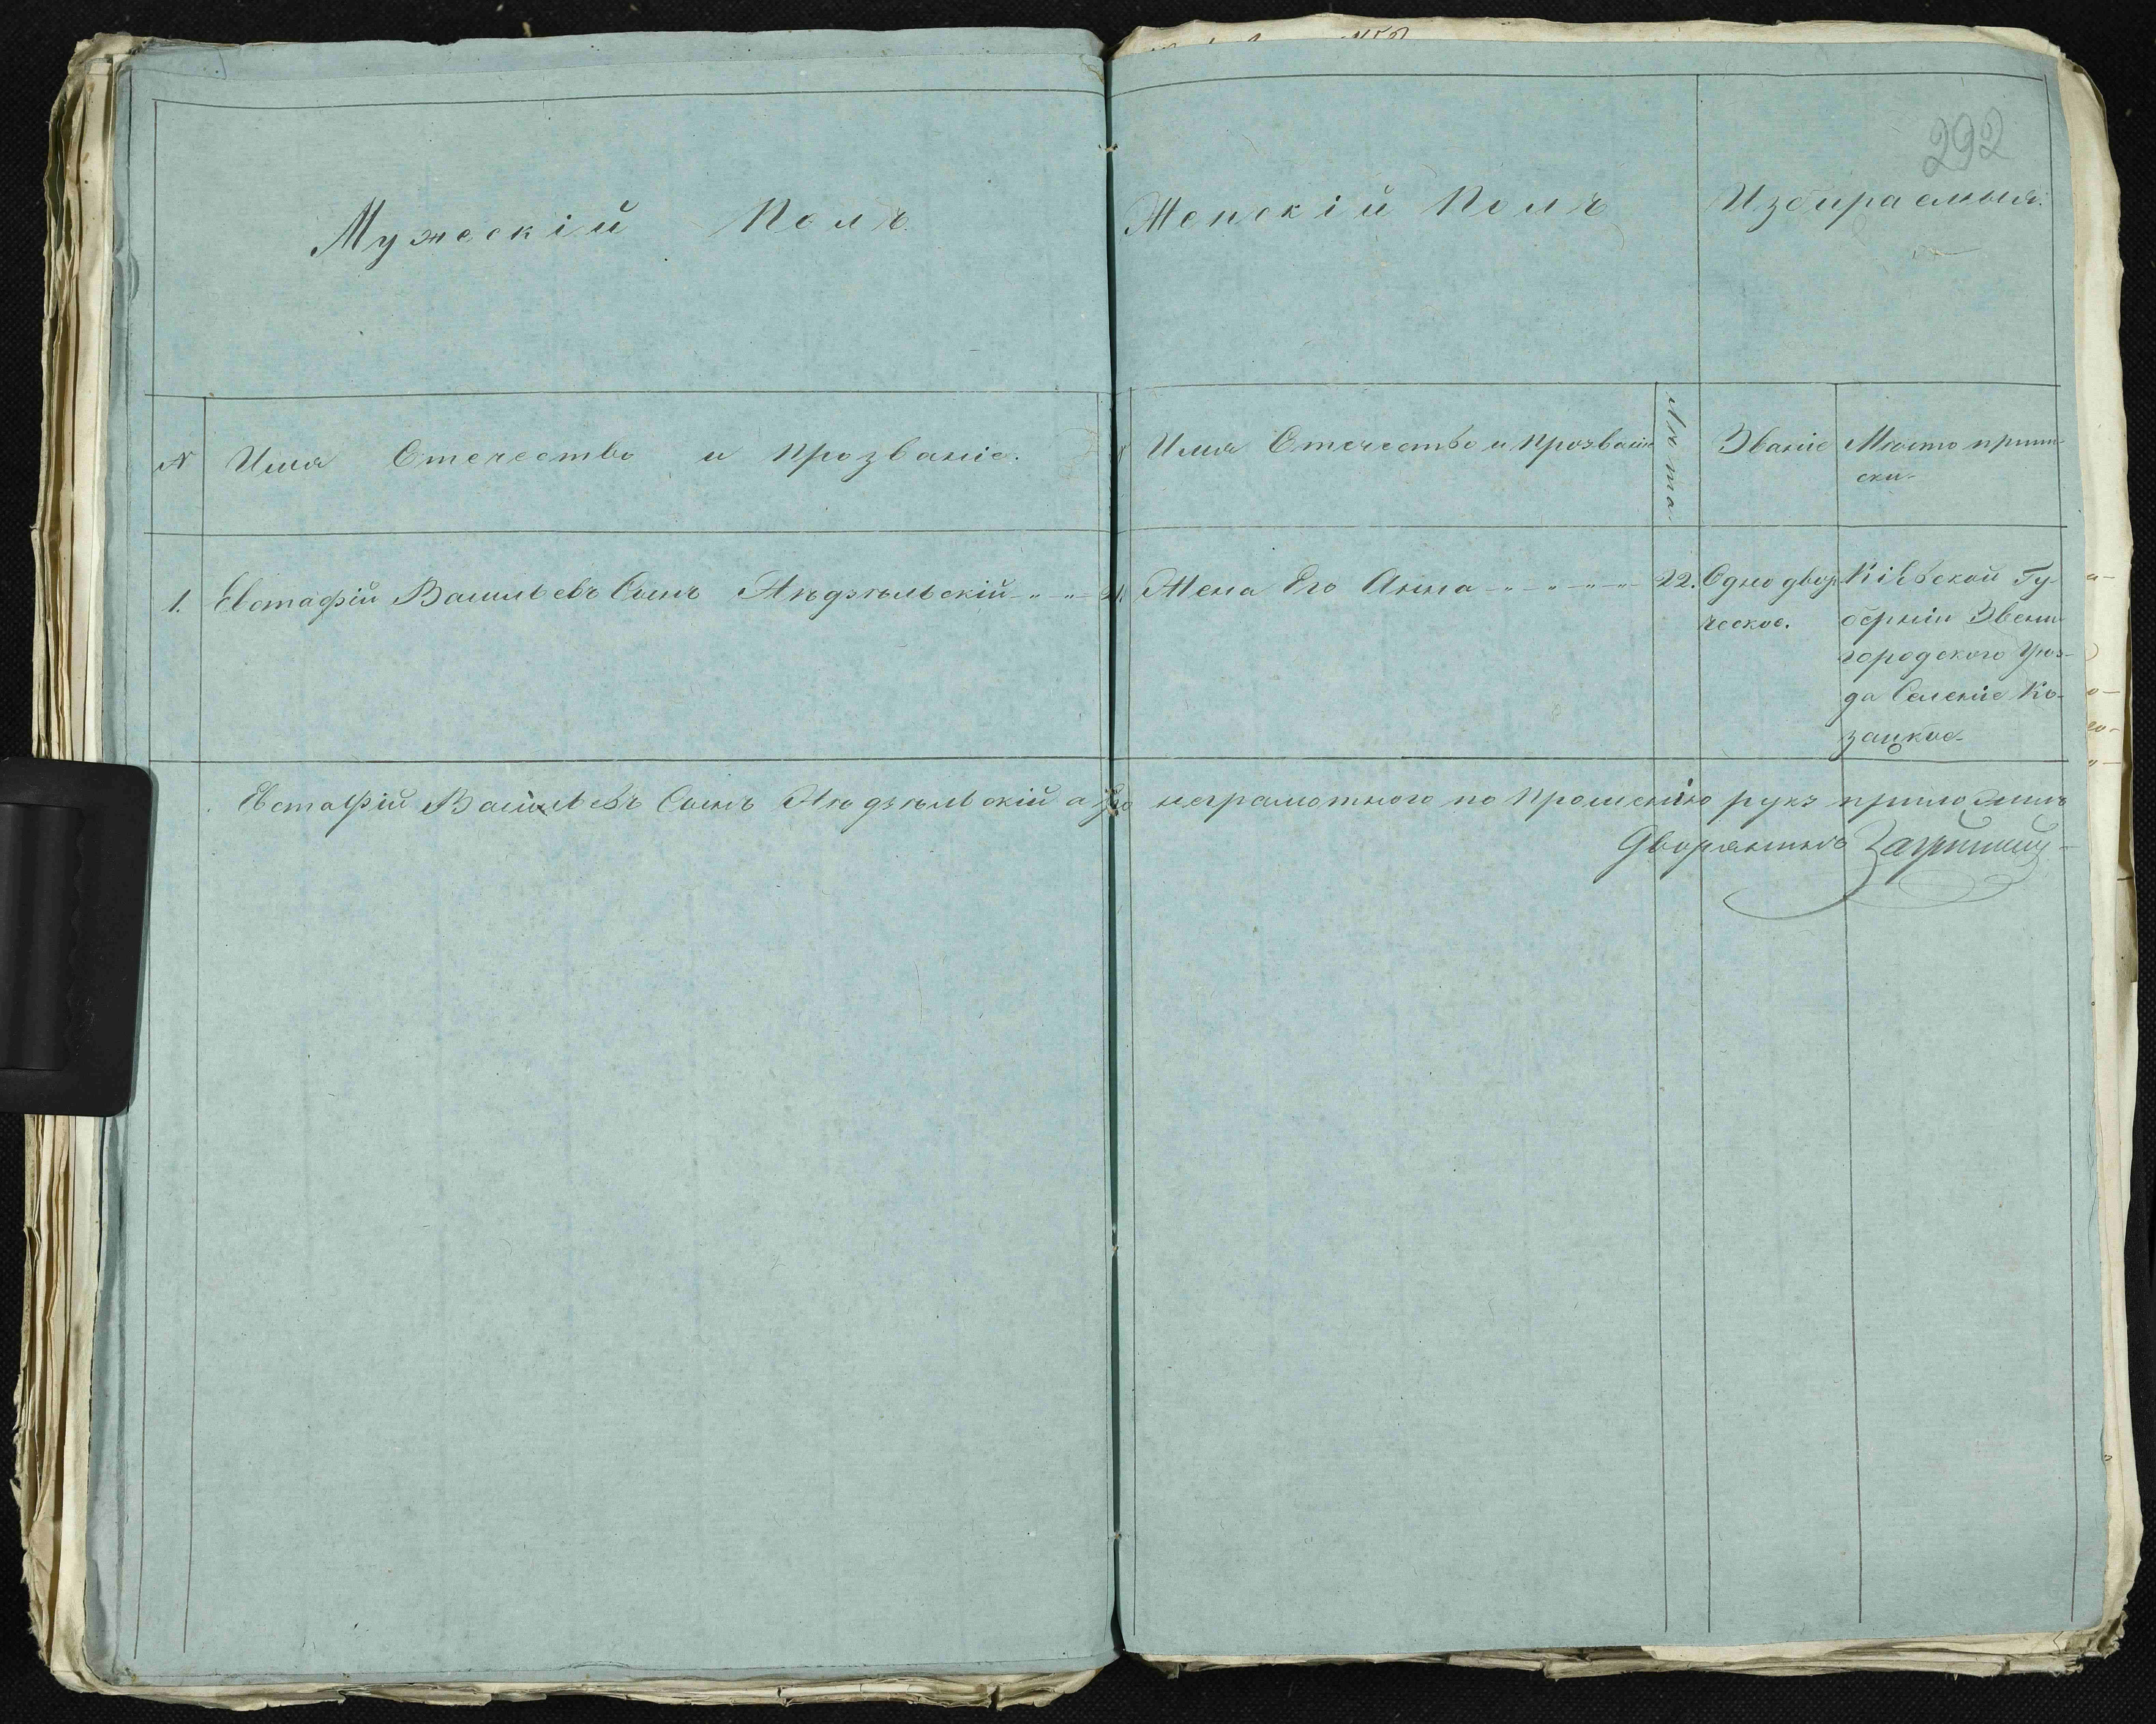 292
Мужескій Полъ.
Женскій Полъ
Избираемыя:
№ Имя Отечество и Прозваніе.
Имя Отечество и Прозваніе
Лѣта
Званіе
Мѣсто припи-
ски.
1. Евстафій Васильевъ Сынъ
Жена Его Анна 22.
Однодвор
ческое.
Кіевской Гу-
берніи Звени-
городского Уѣз-
да Селеніе Ко-
зацкое
Евстафій Васильевъ Сынъ а Его неграмотного по Прошенію руку приложилъ
Дворянинъ